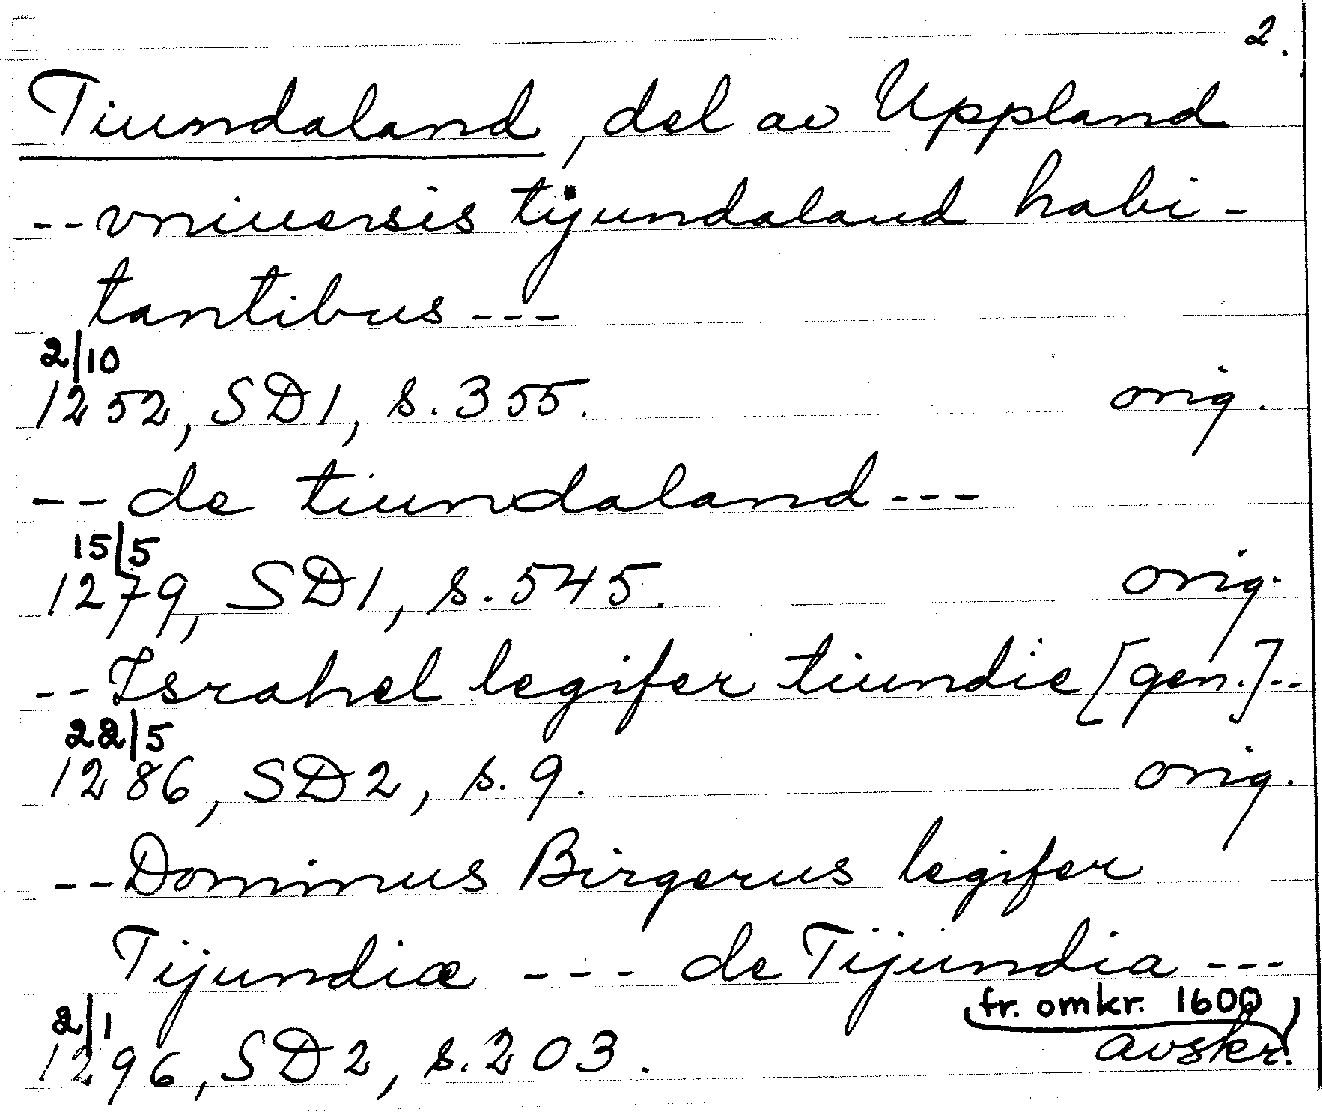 2.
Tiundaland, del av Uppland
--vniuersis tijundaland habi-
tantibus---
2/10
1252, SD1, s.355. orig.
--de tiundaland---
15/5
1279, SD1, s.545. orig.
--Israhel legifer tiundie [gen.]--
22/5
1286, SD2, s.9. orig.
--Dominus Birgerus legifer
Tijundiæ --- de Tijundia ---
2/1 fr. omkr. 1600
1296, SD2, s.203. avskr.